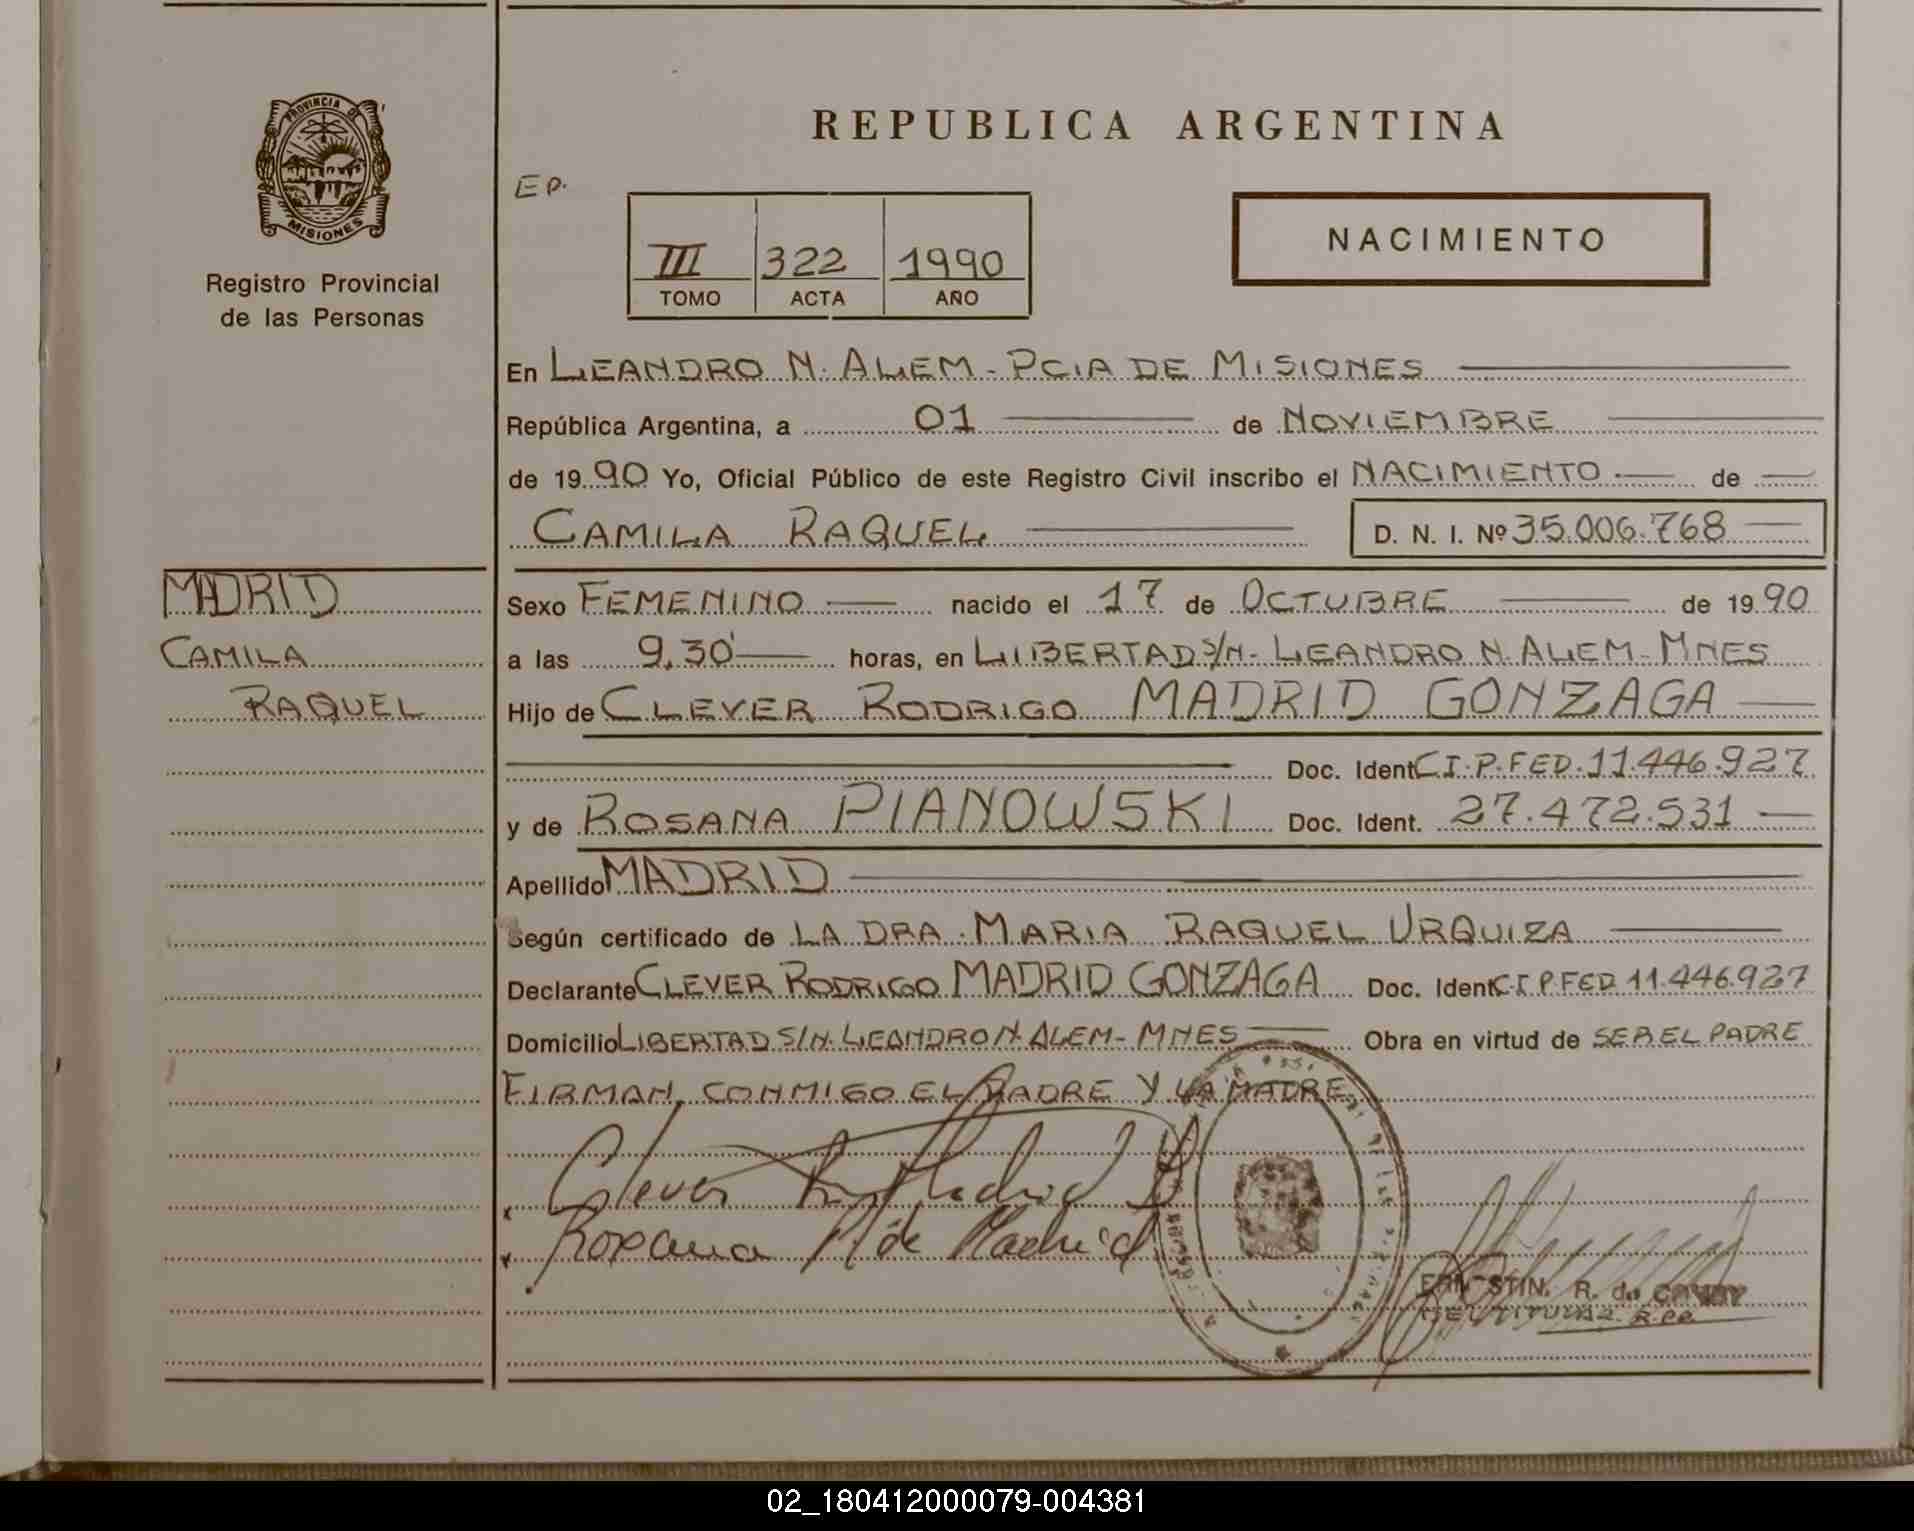 PROVINCIA DE
MISIONES
Registro Provincial
de las Personas
REPUBLICA ARGENTINA
Ep.
III 322 1990
TOMO ACTA AÑO
NACIMIENTO
En LEANDRO N. ALEM - PCIA DE MISIONES
República Argentina, a 01 de NOVIEMBRE
de 1990 Yo, Oficial Público de este Registro Civil inscribo el NACIMIENTO de
CAMILA RAQUEL D. N. I. Nº 35.006.768
MADRID
CAMILA
RAQUEL
Sexo FEMENINO nacido el 17 de OCTUBRE de 1990
a las 9,30' horas, en LIBERTAD S/N - LEANDRO N. ALEM - MNES
Hijo de CLEVER RODRIGO MADRID GONZAGA
Doc. Ident C.I.P.FED. 11.446.927
y de ROSANA PIANOWSKI Doc. Ident. 27.472.531
Apellido MADRID
Según certificado de LA DRA. MARIA RAQUEL URQUIZA
Declarante CLEVER RODRIGO MADRID GONZAGA Doc. Ident C.I.P.FED. 11.446.927
Domicilio LIBERTAD S/N. LEANDRO N. ALEM - MNES Obra en virtud de SER EL PADRE
FIRMAN CONMIGO EL PADRE Y LA MADRE
Clever R. Madrid
x Rosana P. de Madrid
R. de
R.P.P.
02_180412000079-004381